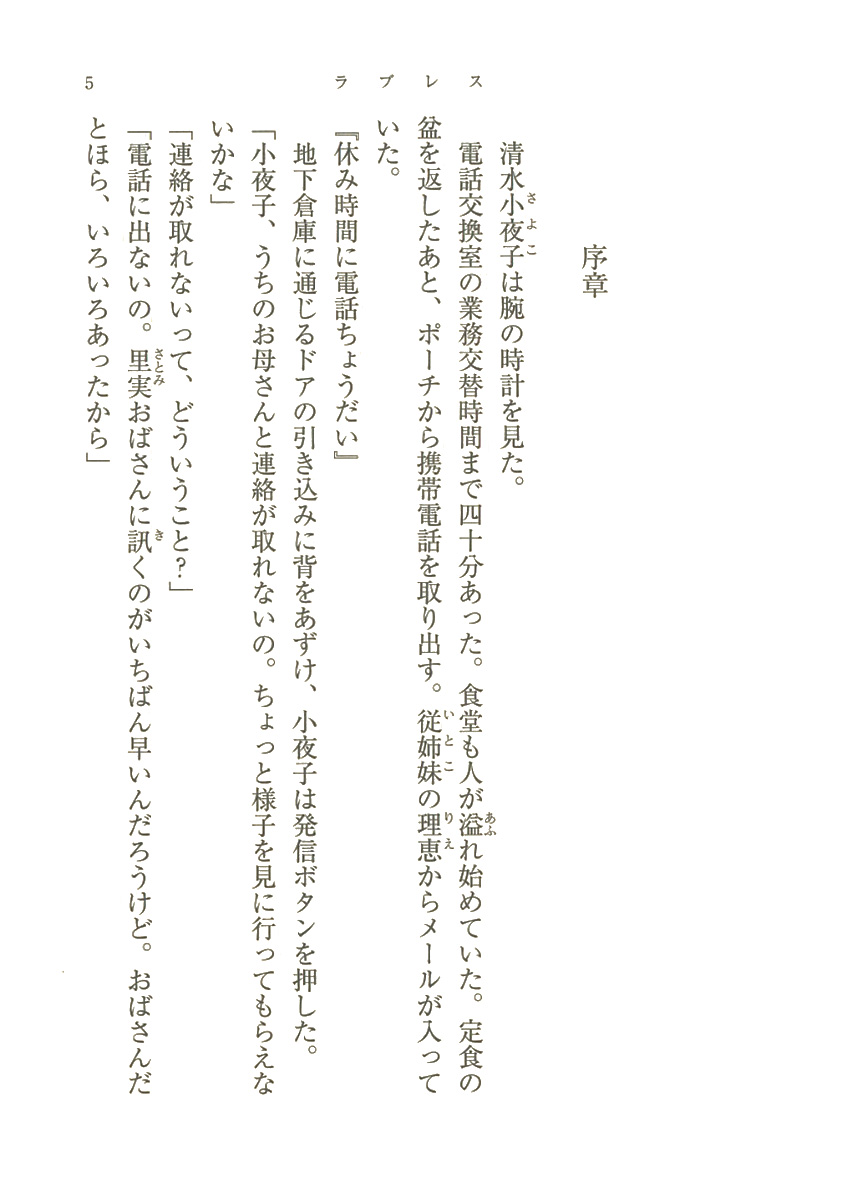 ラブレス
5
序章
清水小夜子は腕の時計を見た。
電話交換室の業務交替時間まで四十分あった。食堂も人が溢れ始めていた。定食の
盆を返したあと、ポーチから携帯電話を取り出す。従姉妹の理恵からメールが入って
いた。
『休み時間に電話ちょうだい』
地下倉庫に通じるドアの引き込みに背をあずけ、小夜子は発信ボタンを押した。
「小夜子、うちのお母さんと連絡が取れないの。ちょっと様子を見に行ってもらえな
いかな」
「連絡が取れないって、どういうこと?」
「電話に出ないの。里実おばさんに訊くのがいちばん早いんだろうけど。おばさんだ
とほら、いろいろあったから」